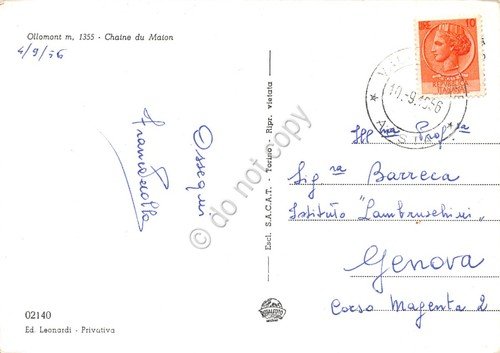 Ollomont m. 1355 - Chaine du Maion
4/9/56
Ossequi
10
10.-9.1956
Ill.ma Prof.ssa
Sig.ra Barreca
Istituto "Lambruschini"
Genova
Corso Magenta 2
Escl. S.A.C.A.T. - Torino - Ripr. vietata
02140
Ed Leonardi - Privativa
do not copy